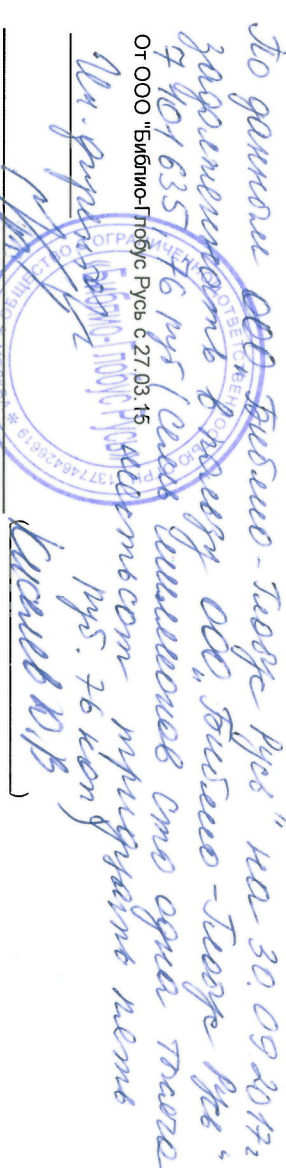 По данным ООО "Библио-Глобус Русь" на 30.09.2017г
задолженность в пользу ООО "Библио-Глобус Русь"
7 101 635,76 руб (Семь миллионов сто одна тысяча
шестьсот тридцать пять
руб. 76 коп)
От ООО "Библио-Глобус Русь с 27.03.15
Ген. директор
Киселев Ю.В
ОБЩЕСТВО С ОГРАНИЧЕННОЙ ОТВЕТСТВЕННОСТЬЮ
Библио-Глобус Русь